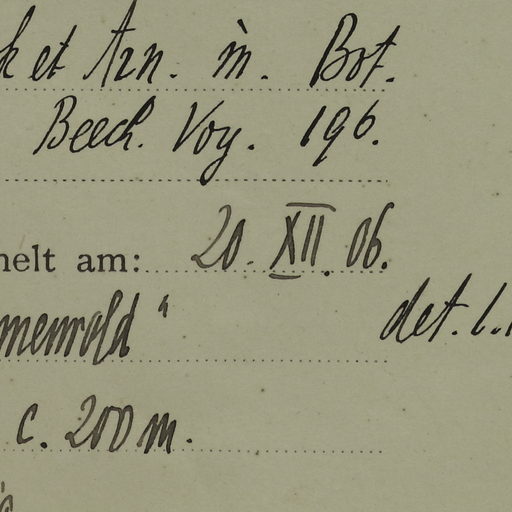 k et Arn. in. Bot.
Beech. Voy. 196.
melt am: 20. XII. 06.
menwald“
det. L.
c. 200 m.